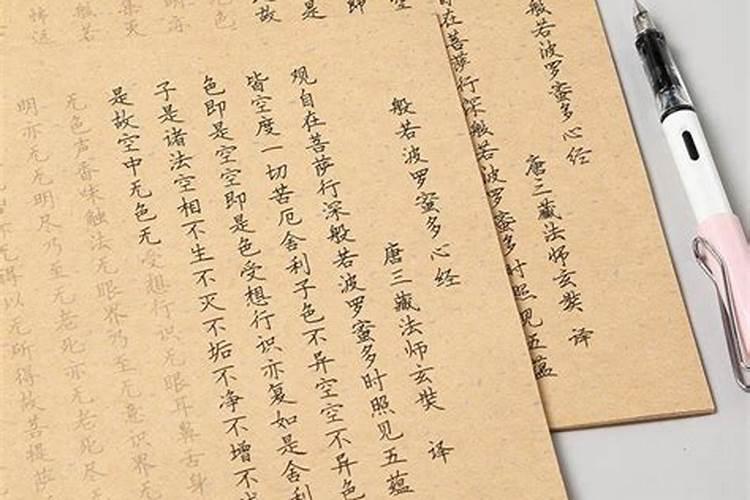 般若波罗蜜多心经
唐三藏法师玄奘 译
自在菩萨行深般若波罗蜜多时照见五蕴
般若波罗蜜多心经
唐三藏法师玄奘 译
观自在菩萨行深般若波罗蜜多时照见五蕴
皆空度一切苦厄舍利子色不异空空不异色
色即是空空即是色受想行识亦复如是舍利
子是诸法空相不生不灭不垢不净不增不
是故空中无色无受想行识无眼耳鼻舌身
无色声香味触法无眼界乃至无意识界无
明亦无无明尽乃至无老死亦无老死尽无
得以无所得故菩提萨